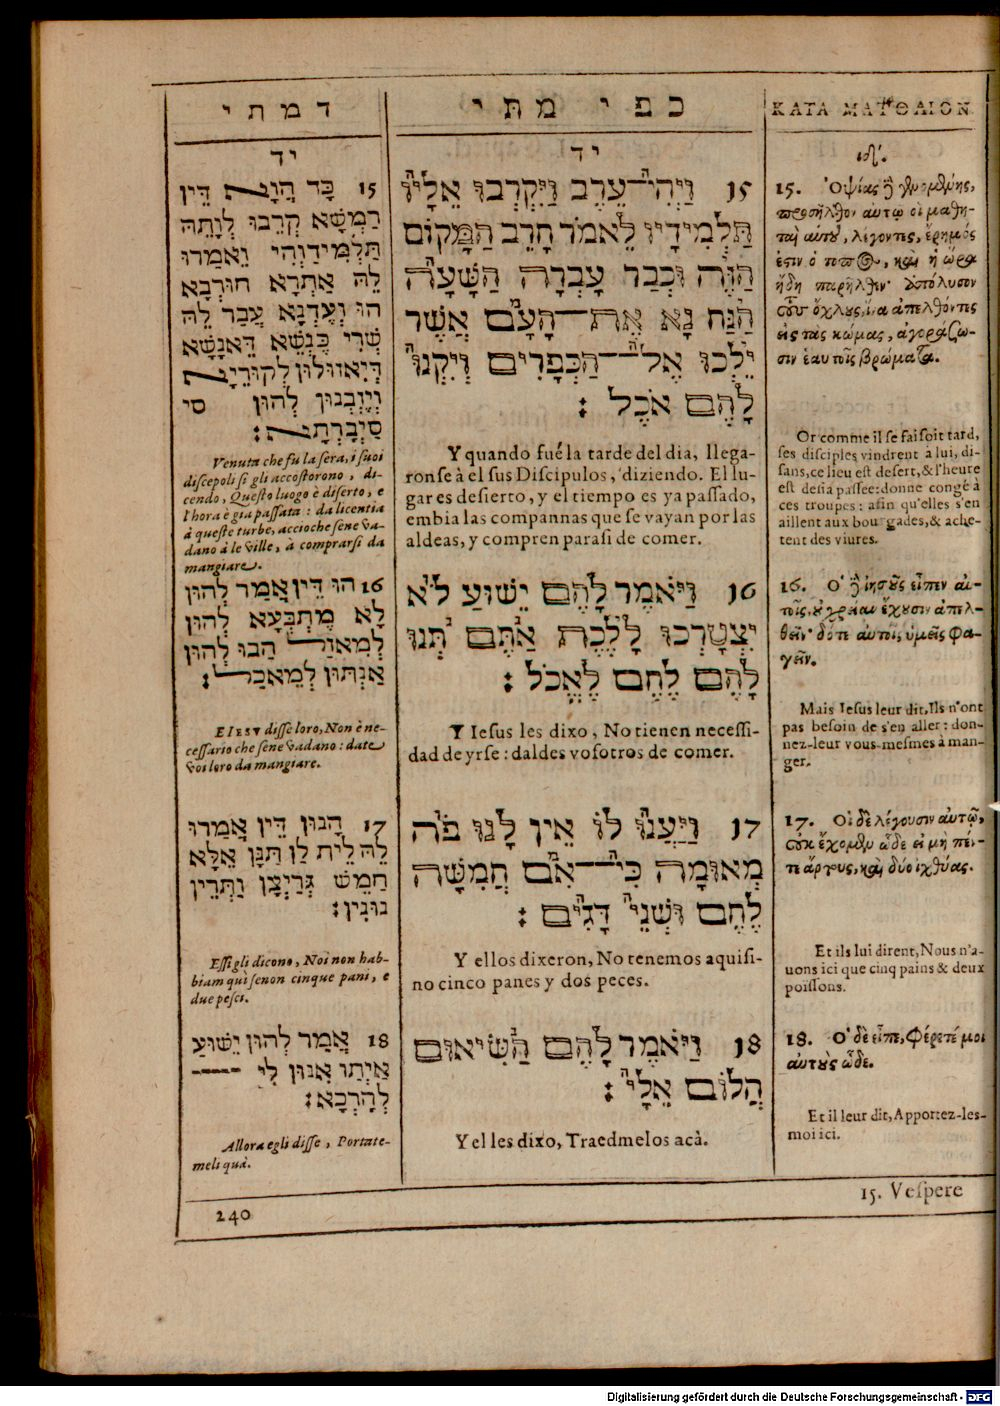 דמתי
יד
15 כָּד הֲוָא דֵּין
רַמְשָׁא קְרֵבוּ לְוָתֵהּ
תַּלְמִידַוְהִי וֶאֲמַרוּ
לֵהּ אַתְרָא חוּרְבָּא
הוּ וְעֶדָּנָא עֲבַר לֵהּ
שְׁרִי כֶּנְשֵׁא דֵּאנָשָׁא
דְּיִאזוּלוּן לְקוּרְיָא
וְיִזְבְּנוּן לְהוּן סי
סַיְבָּרְתָא :
Venuta che fu la sera, i suoi
discepoli si gli accostorono, di-
cendo, Questo luogo è diserto, e
l'hora è gia passata: da licentia
à queste turbe, accioche sene va-
dano à le ville, à comprarsi da
mangiare.
16 הו דֵּין אֲמַר לְהוּן
לָא מֶתְבְּעֵא לְהוּן
לְמִאזַל הַבוּ לְהוּן
אַנְתּוּן לְמֵאכַל :
E IESV disse loro, Non è ne-
cessario che sene vadano: date
voi loro da mangiare.
17 הָנוּן דֵּין אֲמַרוּ
לֵהּ לֵית לַן תְּנָן אֶלָּא
חַמֵשׁ גְּרִיצָן וַתְּרֵין
נוּנִין :
Essi gli dicono, Noi non hab-
biam quì senon cinque pani, e
due pesci.
18 אֲמַר לְהוּן יֵשׁוּעַ
אַיְתַו אֲנוּן לִי
לְהָרְכָּא :
Allora egli disse, Portate-
meli quà.
240
כפי מתי
יד
15 וַיְהִי־עֶרֶב וַיִּקְרְבוּ אֵלָיו
תַּלְמִידָיו לֵאמֹר חָרֵב הַמָּקוֹם
הַזֶּה וּכְבַר עָבְרָה הַשָּׁעָה
הַנַּח נָא אֶת־הָעָם אֲשֶׁר
יֵלְכוּ אֶל־הַכְּפָרִים וְיִקְנוּ
לָהֶם אֹכֶל :
Y quando fué la tarde del dia, llega-
ronse à el sus Discipulos, diziendo. El lu-
gar es desierto, y el tiempo es ya passado,
embia las compannas que se vayan por las
aldeas, y compren parasi de comer.
16 וַיֹּאמֶר לָהֶם יֵשׁוּעַ לֹא
יִצְטָרְכוּ לָלֶכֶת אַתֶּם תְּנוּ
לָהֶם לֶחֶם לֶאֱכֹל :
Y Iesus les dixo, No tienen necessi-
dad de yrse: daldes vosotros de comer.
17 וַיַּעֲנוּ לוֹ אֵין לָנוּ פֹּה
מְאוּמָה כִּי־אִם חֲמִשָּׁה
לֶחֶם וּשְׁנֵי דָּגִים :
Y ellos dixeron, No tenemos aqui si-
no cinco panes y dos peces.
18 וַיֹּאמֶר לָהֶם הַשִּׂיאוּם
הֲלוֹם אֵלָי :
Y el les dixo, Traedmelos acà.
ΚΑΤΑ ΜΑΤΘΑΙΟΝ
ιδ'.
15. Ὀψίας δὲ γενομένης,
προσῆλθον αὐτῷ οἱ μαθη-
ταὶ αὐτοῦ, λέγοντες, ἔρημός
ἐστιν ὁ τόπος, καὶ ἡ ὥρα
ἤδη παρῆλθεν· ἀπόλυσον
τοὺς ὄχλους, ἵνα ἀπελθόντες
εἰς τὰς κώμας, ἀγοράσω-
σιν ἑαυτοῖς βρώματα.
Or comme il se faisoit tard,
ses disciples vindrent à lui, di-
sans, ce lieu est desert, & l'heure
est desia passée: donne congé à
ces troupes: afin qu'elles s'en
aillent aux bourgades, & ache-
tent des viures.
16. Ὁ δὲ ἰησοῦς εἶπεν αὐ-
τοῖς, οὐ χρείαν ἔχουσιν ἀπελ-
θεῖν· δότε αὐτοῖς ὑμεῖς φα-
γεῖν.
Mais Iesus leur dit, Ils n'ont
pas besoin de s'en aller: don-
nez-leur vous-mesmes à man-
ger.
17. Οἱ δὲ λέγουσιν αὐτῷ,
οὐκ ἔχομεν ὧδε εἰ μὴ πέν-
τε ἄρτους, καὶ δύο ἰχθύας.
Et ils lui dirent, Nous n'a-
uons ici que cinq pains & deux
poissons.
18. Ὁ δὲ εἶπε, Φέρετέ μοι
αὐτοὺς ὧδε.
Et il leur dit, Apportez-les-
moi ici.
15. Vespere
Digitalisierung gefördert durch die Deutsche Forschungsgemeinschaft - DFG